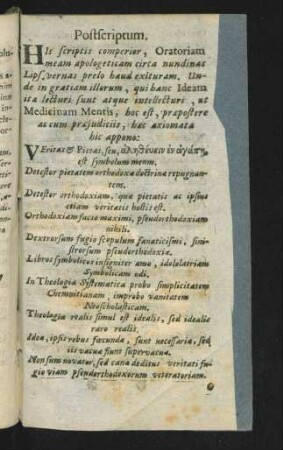 Postscriptum.
HIs scriptis comperior, Oratoriam
meam apologeticam circa nundinas
Lips. vernas prelo haud exituram. Un-
de in gratiam illorum, qui hanc Ideam
ita lecturi sunt atque intellecturi, ut
Medicinam Mentis, hoc est, præpostere
ac cum præjudiciis, hæc axiomata
hic appono:
Veritas & Pietas, seu, ἀληθέυειν ἐν ἀγάπῃ,
est symbolum meum.
Detestor pietatem orthodoxæ doctrinæ repugnan-
tem.
Detestor orthodoxiam, quæ pietatis ac ipsius
etiam veritatis hostis est.
Orthodoxiam facio maximi, pseudorthodoxiam
nihili.
Dextrorsum fugio scopulum fanaticismi, sini-
strorsum pseudorthodoxiæ.
Libros symbolicos insigniter amo, idololatriam
Symbolicam odi.
In Theologia Systematica probo simplicitatem
Chemnitianam, improbo vanitatem
Neoscholasticam.
Theologia realis simul est idealis, sed idealis
raro realis.
Ideæ, ipsis rebus fœcundæ, sunt necessariæ, sed
iis vacuæ fiunt supervacuæ.
Non sum novator, sed cana deditus veritati fu-
gio viam pseudorthodoxorum veteratoriam.